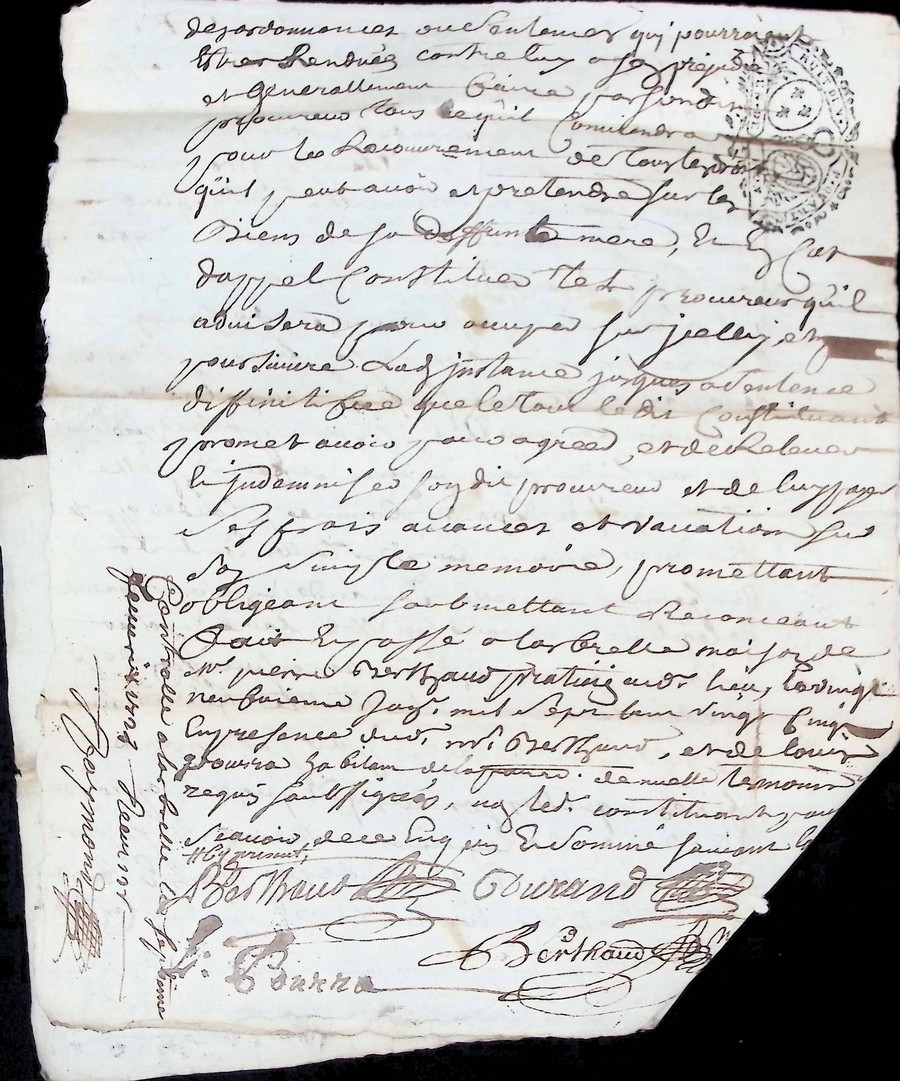 des ordonnances ou Sentences qui pourroient
Estre Rendües contre luy a son prejudice
et Generallement faire par sondit
procureur tous ce qu'il Conviendra
pour le Recouvrement de tous les droits
qu'il peut avoir et pretendre sur les
Biens de sa deffunte mere, Et En Cas
d'appel Constituer tel procureur qu'il
advisera pour occuper sur jcelluy, et
poursuivre Lad jnstance jusques a sentence
diffinitifve que le tout ledit Constituant
promet avoir pour agreé, et de Relever
Et jndemniser sondit procureur et de luy payer
Ses frais avances et vacations sur
son simple memoire, promettant
obligeant soubmettant Renonceant
fait Et passé a la brelle maison de
Mr. pierre Berthaud praticien aud. lieu, le vingt
neufvieme Janr. mil sept cent vingt cinq
En presence dud. mr. Berthaud, et de louis
Bourra habitant de la parr. de temoins
requis soubssignés, non led. constituant pour
ne scavoir de ce Enquis Et Sommé suivant l
Berthaud Durand
L. Bourra Berthaud
Controllé a la brelle le septieme
feuvrier 1725 Receu
Raymond